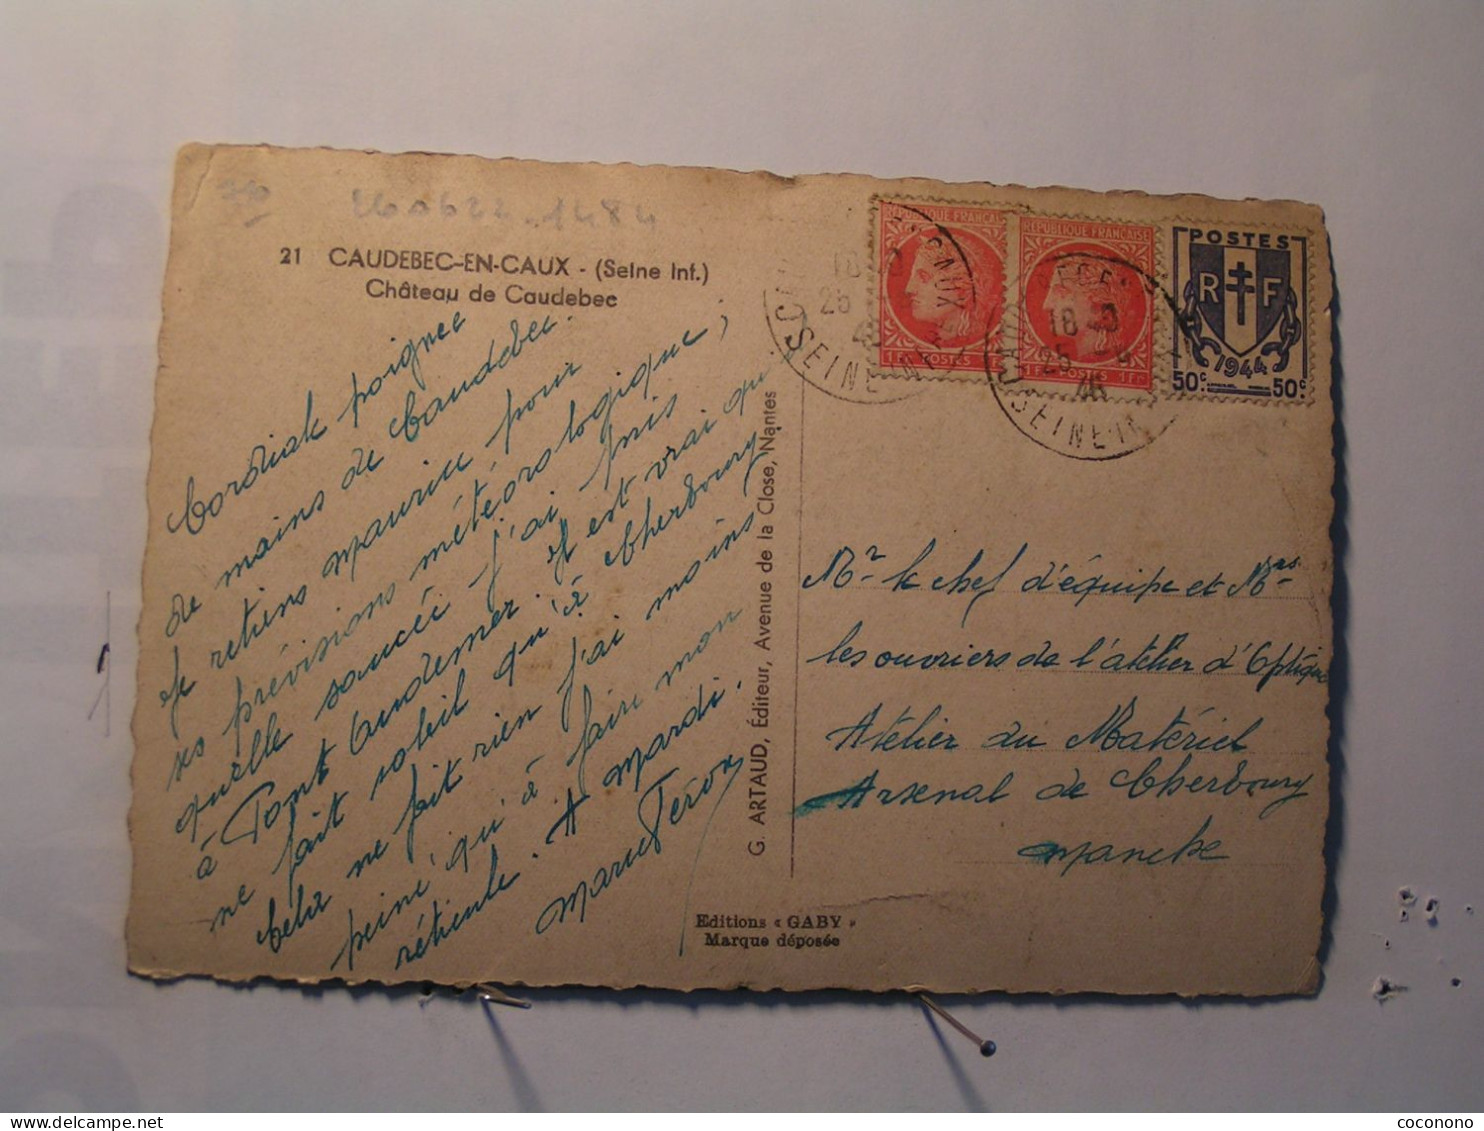 260622-1484
21 CAUDEBEC-EN-CAUX - (Seine Inf.)
Château de Caudebec
Cordiale poignée
de mains de Caudebec.
Je retiens Maurice pour
ses prévisions météorologique,
quelle saucée j'ai pris
à Pont Audemer. Il est vrai qu
ne fait soleil qu'à Cherbourg
Cela ne fait rien j'ai moins
peine qu'à faire mon
réticule. A Mardi.
G. ARTAUD, Éditeur, Avenue de la Close, Nantes
Editions « GABY »
Marque déposée
RÉPUBLIQUE FRANÇAISE
1F POSTES
RÉPUBLIQUE FRANÇAISE
1F POSTES 1F
POSTES
RF
1944
50c 50c
18
25
SEINE INF
18
25
46
SEINE IN
Mr le chef d'équipe et Mrs
les ouvriers de l'atelier d'Optique
Atelier du Matériel
Arsenal de Cherbourg
Manche
coconono